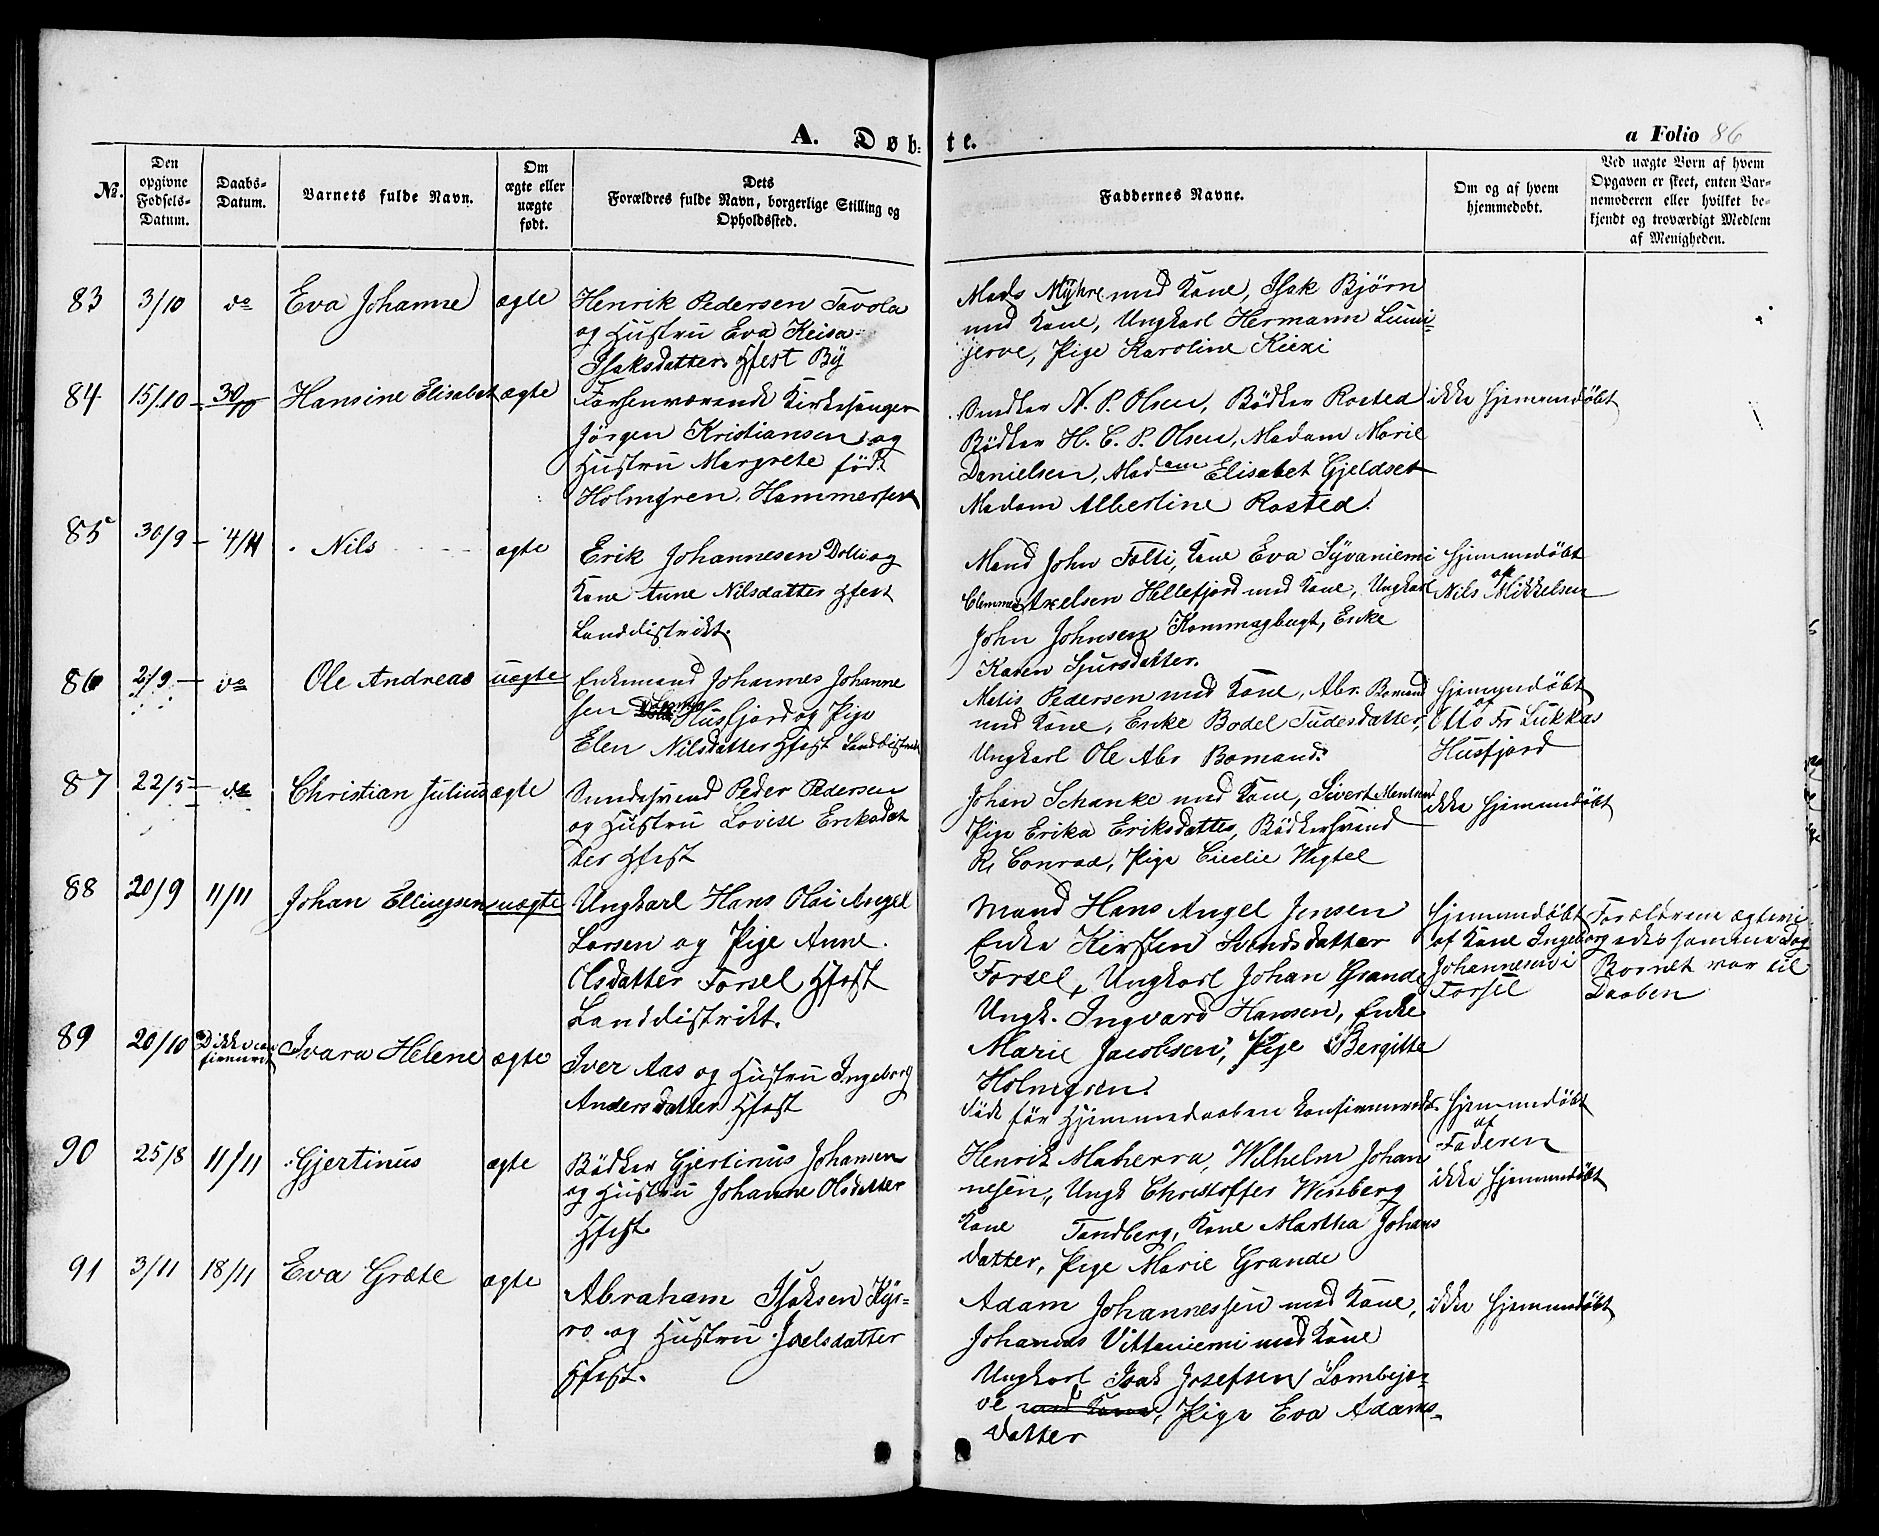 A. Døb-
te.
a Folio 86
No.
Den
opgivne
Fødsels-
Datum.
Daabs-
Datum.
Barnets fulde Navn.
Om
ægte eller
uægte
født.
Dets
Forældres fulde Navn, borgerlige Stilling og
Opholdssted.
Faddernes Navne.
Om og af hvem
hjemmedøbt.
Ved uægte Børn af hvem
Opgaven er skeet, enten Bar-
nemoderen eller hvilket be-
kjendt og troværdigt Medlem
af Menigheden.
83 3/10 do Eva Johanne ægte
Henrik Pedersen Tavola
og Hustru Eva Keisa
Isaksdatter Hfest By
Mads Myhre med Kone, Isak Bjørn
med Kone, Ungkarl Hermann Lumi-
jerve, Pige Karoline Kieri
84 15/10 30/10 Hansine Elisabet ægte
Forhenværende Kirkesanger
Jørgen Kristiansen og
Hustru Margrete født
Holmgren, Hammerfest
Snedker N. P. Olsen, Bødker Rosted
Bødker H. C. P. Olsen, Madam Marie
Danielsen, Madam Elisabet Gjeldset
Madam Albertine Rosted.
ikke hjemmedøbt
85 30/9 4/11 Nils ægte
Erik Johannesen Dolli og
Kone Anne Nilsdatter Hfest
Landdistrikt.
Mand John Tolti, Kone Eva Syvaniemi
Clemmet Axelsen Hellefjord med Kone, Ungkarl
John Johnsen Kommagbugt, Enke
Karen Sjursdatter.
hjemmedøbt
af
Nils Mikkelsen
86 2/9 do Ole Andreas uægte
Enkemand Johannes Johanne
sen Husfjord og Pige
Elen Nilsdatter Hfest Landdistrikt
Matis Pedersen med Kone, Abr. Bomand
med Kone, Enke Bodel Tudesdatter,
Ungkarl Ole Abr Bomand.
hjemmedøbt
af
Otto Fr Lukkas
Husfjord
87 22/5 do Christian Julius ægte
Smedesvend Peder Pedersen
og Hustru Lovise Eriksdat
ter Hfest
Johan Schanke med Kone, Sivert
Pige Erika Eriksdatter, Bødkersvend
R. Conrad, Pige Cicelie Wigtel
ikke hjemmedøbt
88 20/9 11/11 Johan Ellingsen uægte
Ungkarl Hans Olai Angel
Larsen og Pige Anne
Olsdatter Forsøl Hfest
Landdistrikt.
Mand Hans Angel Jensen
Enke Kirsten Svendsdatter
Forsøl, Ungkarl Johan Grande
Ungk. Ingvard Hansen, Enke
Marie Jacobsen, Pige Bergitte
Holmgren.
hjemmedøbt
af Kone Ingeborg
Johannesen i
Forsøl
Forældrene ægtevi
edes samme Dag
Barnet var til
Daaben
89 20/10 D ikke con
firmeret Ivara Helene ægte
Iver Aas og Hustru Ingeborg
Andersdatter Hfest
Døde før Hjemmedaaben konfirmeredes
hjemmedøbt
af
Faderen
90 25/8 11/11 Gjertinus ægte
Bødker Gjertinus Johansen
og Hustru Johanne Olsdatter
Hfest.
Henrik Maherra, Wilhelm Johan
nesen, Ungk Christoffer Winberg
Kone Tandberg, Kone Martha Johans
datter, Pige Marie Grande
ikke hjemmedøbt
91 3/11 18/11 Eva Grete ægte
Abraham Isaksen Kyr-
ro og Hustru Joelsdatter
Hfest.
Adam Johannessen med Kone,
Johannes Vittaniemi med Kone
Ungkarl Isak Josefsen Lombijer-
ve med Kone, Pige Eva Adams-
datter
ikke hjemmedøbt